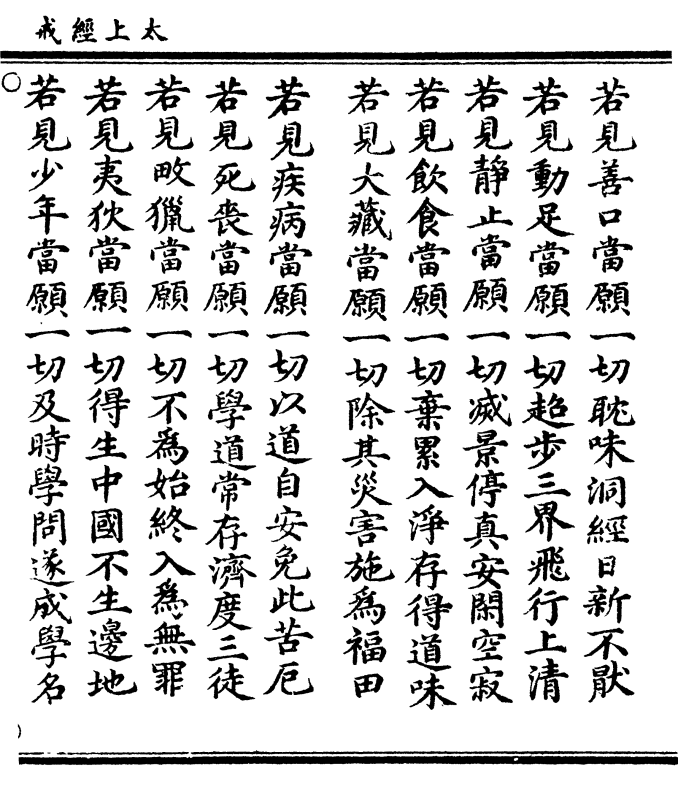 太上經戒
若見善口當願一切耽味洞經日新不猒
若見動足當願一切超步三界飛行上清
若見靜止當願一切滅景停真安閑空寂
若見飲食當願一切棄累入淨存得道味
若見大藏當願一切除其災害施爲福田
若見疾病當願一切以道自安免此苦厄
若見死喪當願一切學道常存濟度三徒
若見畋獵當願一切不爲始終入爲無罪
若見夷狄當願一切得生中國不生邊地
若見少年當願一切及時學問遂成學名